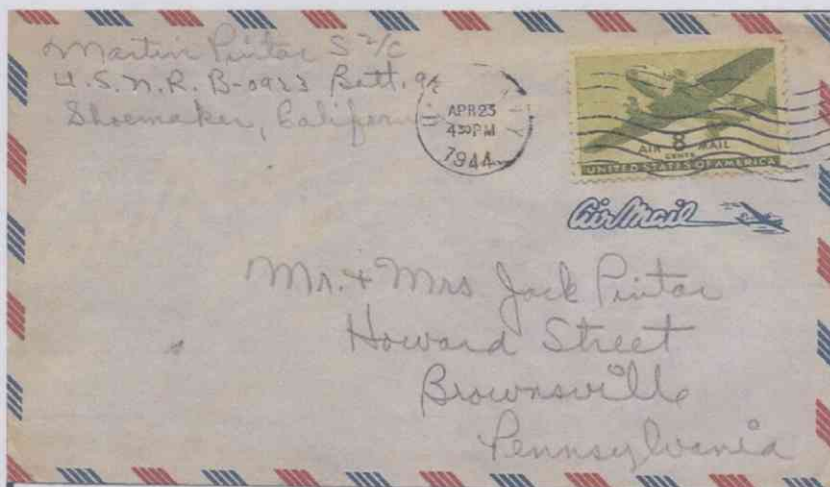 Martin Pintar S 2/C
U.S.N.R. B-0923 Batt.
Shoemaker, California
APR 23
4 30 PM
1944
AIR 8 MAIL
CENTS
UNITED STATES OF AMERICA
Air Mail
Mr. + Mrs Jack Pintar
Howard Street
Brownsville
Pennsylvania